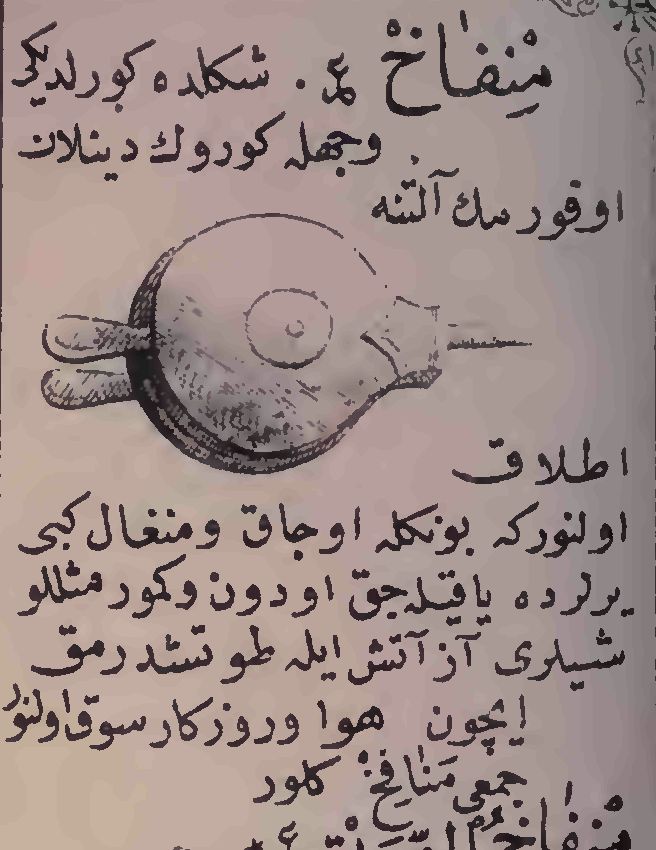 مِنْفَاخْ ع . شكلده كورلديكى
وجهله كوروك دينلان
اوقورسك آلتنه
اطلاق
اولنوركه بونكله اوجاق ومنغال كبى
يرلرده ياقيله جق اودون وكمور مثللو
شيلرى آز آتش ايله طوتشدرمق
ايچون هوا وروزكار سوق اولنور
جمعى مَنَافِخْ كلور
مِنْفَاخُ